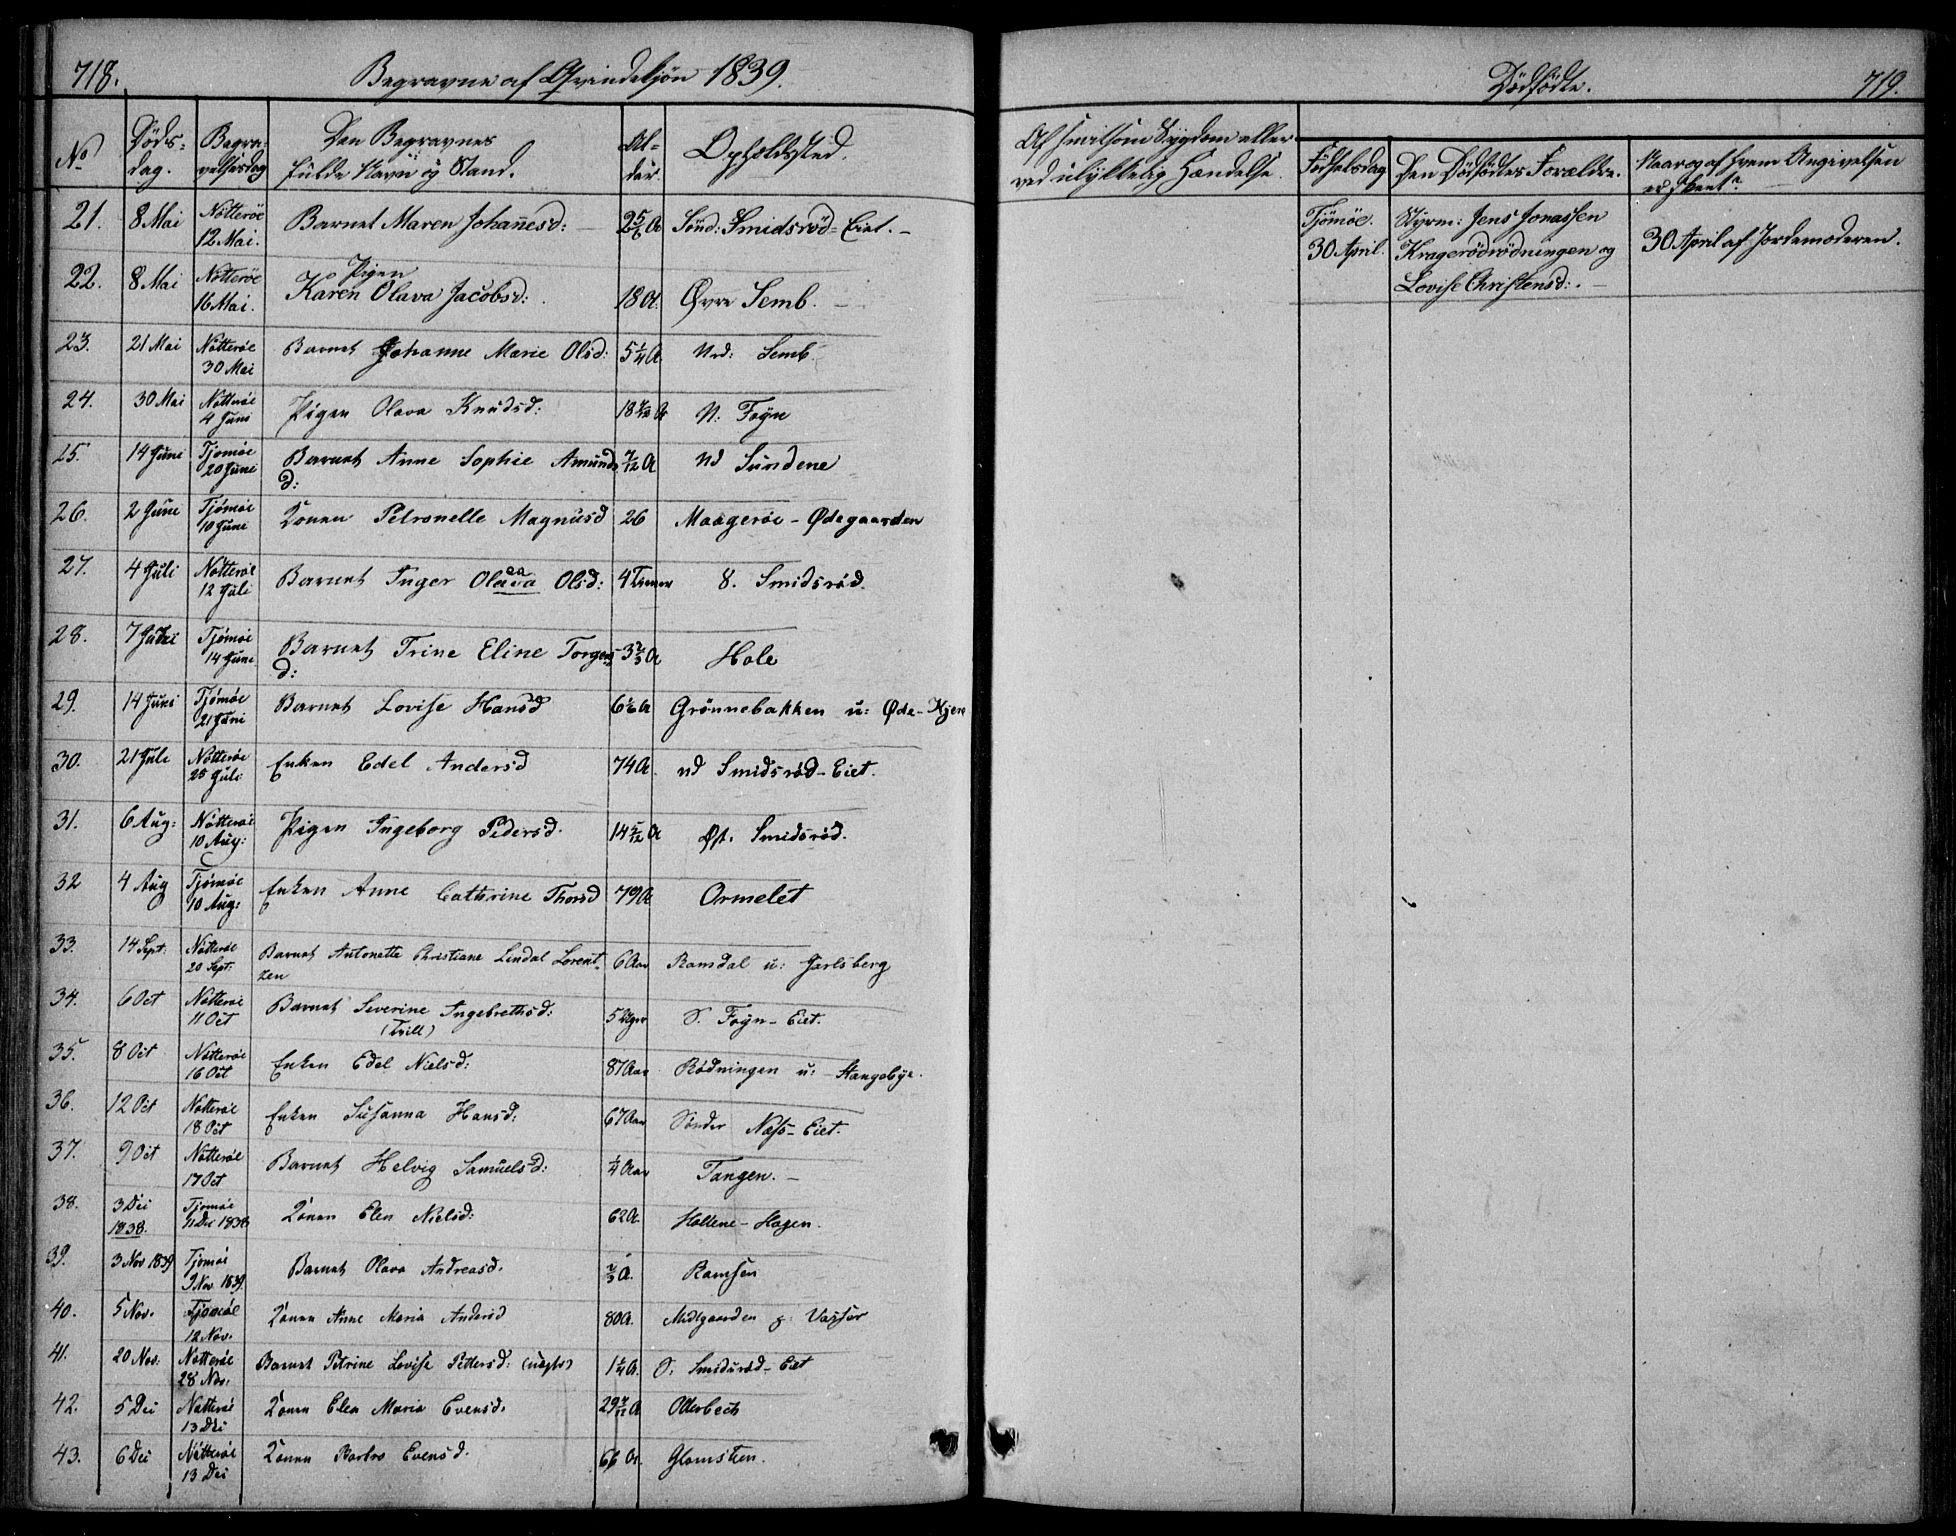 718.
Begravne af Qvindekjön 1839.
No
Døds-
dag.
Begra-
velsesdag
Den Begravnes
fulde Navn og Stand.
Al-
der.
Opholdssted.
21. 8 Mai Nötteröe 12 Mai. Barnet Maren Johannesd: 2 5/6 A Sönd: Smidsröd-Eiet.
22. 8 Mai Nötteröe 16 Mai. Pigen Karen Olava Jacobsd: 18 A. Øvre Semb.
23. 21 Mai Nötteröe 30 Mai Barnet Johanne Marie Olsd: 5 1/4 A Nrd: Semb.
24. 30 Mai Nötteröe 4 Juni Pigen Olava Knudsd: 18 A N. Foyn
25. 14 Juni Tjømøe 20 Juni Barnet Anne Sophie Amunds d: 7/12 A Nd Sundene
26. 2 Juni Tjømøe 10 Juni Konen Petronelle Magnusd 26 Maageröe-Ødegaarden
27. 4 Juli Nötteröe 12 Juli Barnet Inger Olava Olsd: 4 Timer S. Smidsröd.
28. 7 Juni Tjømøe 14 Juni Barnet Trine Eline Torgers d: 3 2/3 A Hole
29. 14 Juni Tjømøe 21 Juni Barnet Lovise Hansd 6 1/6 A Grönnebakken u: Øde-Kjære
30. 21 Juli Nötteröe 25 Juli Enken Edel Andersd 74 A. nd Smidsröd-Eiet.
31. 6 Aug: Nötteröe 10 Aug: Pigen Ingeborg Pedersd. 14 5/12 A Øst. Smidsröd.
32 4 Aug Tjømøe 10 Aug: Enken Anne Cathrine Thorsd 79 A Ormelet
33. 14 Sept. Nötteröe 20 Sept. Barnet Antonette Christiane Lindal Lorent-zen 6 Aar Ramdal u: Jarlsberg
34. 6 Oct Nötteröe 11 Oct Barnet Severine Ingebrethsd: (Tvill) 5 Uger S. Foyn-Eiet.
35. 8 Oct Nötteröe 16 Oct Enken Edel Nielsd: 87 Aar Rödningen u: Stangebye.
36. 12 Oct Nötteröe 18 Oct Enken Susanna Hansd: 67 Aar Sönder Næss-Eiet.
37. 9 Oct Nötteröe 17 Oct Barnet Helvig Samuelsd: 1/4 Aar Tangen.
38. 3 Dec 1838. Tjømøe 11 Dec 1838 Konen Elen Nielsd: 62 A. Hollene-Hagen.
39. 3 Nov 1839 Tjømøe 9 Nov. 1839. Barnet Olava Andreasd. 2/3 A. Ramsen
40. 5 Nov. Tjømøe 12 Nov. Konen Anne Maria Andersd 80 A. Midgaarden
41. 20 Nov. Nötteröe 28 Nov. Barnet Petrine Lovise Pettersd: (uægte) 1 1/4 A. S. Smidsröd-Eiet
42. 5 Dec Nötteröe 13 Dec Konen Elen Maria Evensd. 29 A Oterbech
43. 6 Dec Nötteröe 13 Dec Konen Barbro Evensd. 66 A. Glomsteen.
Dödfödte.
719.
Af smitsom Sygdom eller
ved ulykkelig Hændelse.
Födselsdag
Den Dödfödtes Forældre.
Naar og af hvem Angivelsen
er skeet?
Tjömöe.
30 April.
Styrm: Jens Jonassen
Krageröderödningen og
Lovise Christensd:.
30 April af Jordemoderen.